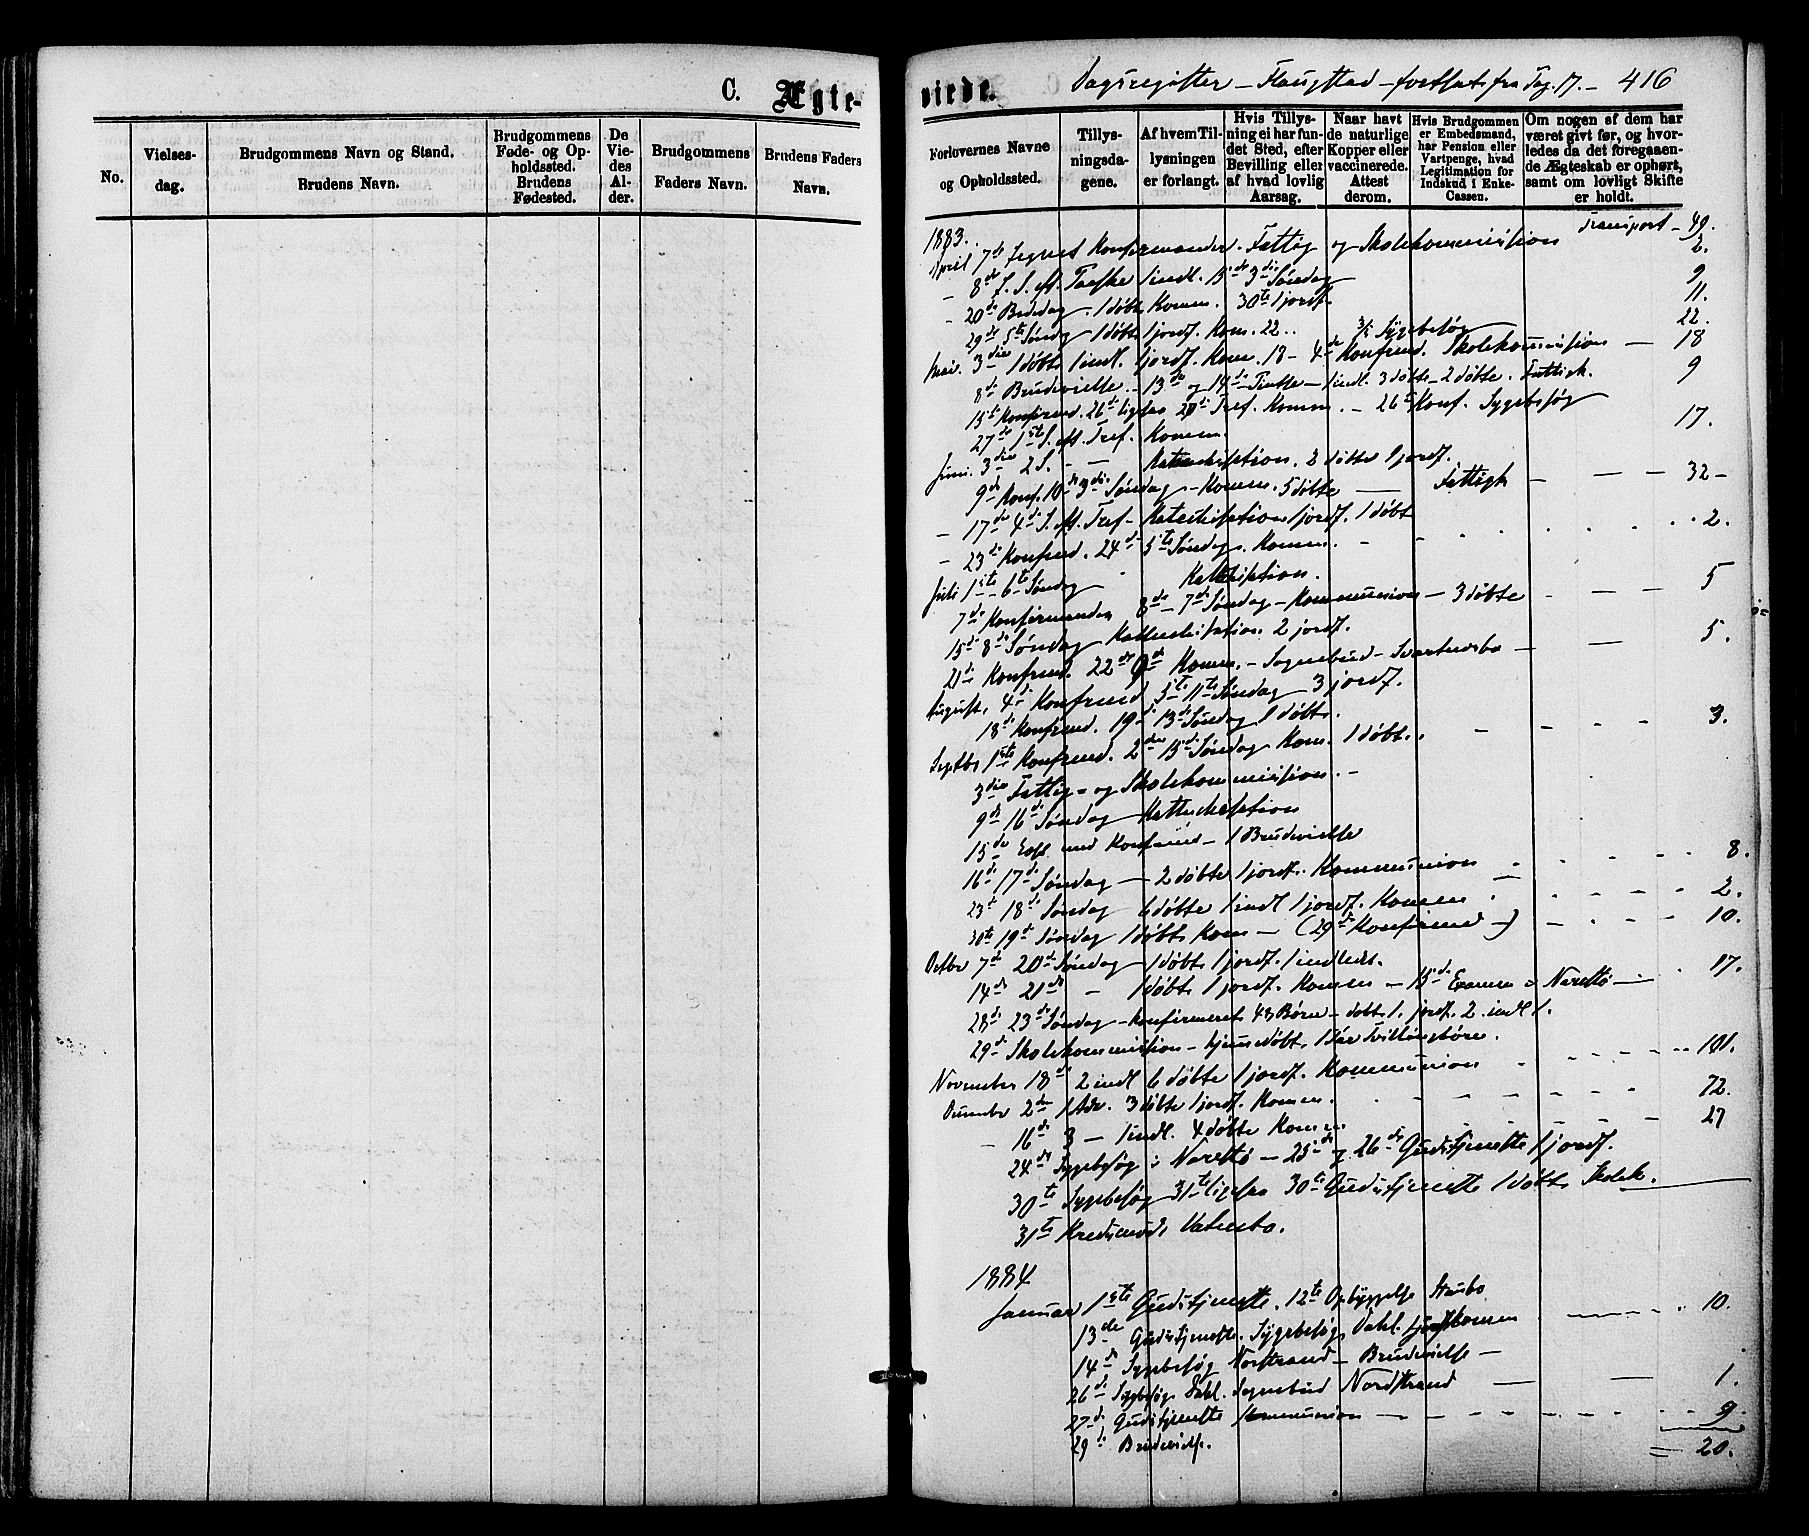 C. Ægte-
No.
Vielses-
dag.
Brudgommens Navn og Stand.
Brudens Navn.
Brudgommens
Føde- og Op-
holdssted.
Brudens
Fødested.
De
Vie-
des
Al-
der.
Brudgommens
Faders Navn.
Brudens Faders
Navn.
viede. Dagsregister - - fortsat fra Pag. 17. - 416
Forlovernes Navne
og Opholdssted.
Tillys-
ningsda-
gene.
Af hvem Til-
lysningen
er forlangt.
Hvis Tillys-
ning ei har fun-
det Sted, efter
Bevilling eller
af hvad lovlig
Aarsag.
Naar havt
de naturlige
Kopper eller
vaccinerede.
Attest
derom.
Hvis Brudgommen
er Embedsmand,
har Pension eller
Vartpenge, hvad
Legitimation for
Indskud i Enke-
Cassen.
Om nogen af dem har
været givt før, og hvor-
ledes da det foregaaen-
de Ægteskab er ophørt,
samt om lovligt Skifte
er holdt.
1883. Transport - 49.
April 7de Konfirmander. Fattig og Skolekommission 2.
- 8de S. eft. Paaske 1 indl. 15de 3die Søndag 9
- 20de Bededag. 1 døbt Komm. 30te 1 jordf. 11.
29de 5te Søndag 1 døbt 1 jordf. Kom. 22.. Sygebesøg 22.
Mai. 3die 1 døbt 1 indl. 1 jordf. Kom. 18 - 4de Konfrmd. Skolekommission - 18
8de Brudevielse - 13de og 14de Pintse - 1 indl. 3 døbte - 2 døbte. Fattigk. 9
15te Konfirmd. 26de 20de Tref. Komm. - 26te Konf. Sygebesøg
27de 1ste S. eft. Tref. Komm. 17.
Juni. 3die 2 S. - - Katechisation. 2 døbte 1 jordf.
9de Konf. 10de 3die Søndag - Komm. 5 døbte - Fattigk - - - 32 -
- 17de 4de S. eft. Tref - Katechisation 1 jordf. 1 døbt
- 23de Konfrmd. 24de 5te Søndag. Komm. 2.
Juli 1ste 6te Søndag Katechisation.
7de Konfirmander 8de - 7de Søndag - Kommunion - 3 døbte - - - 5
15de 8de Søndag Katechisation. 2 jordf.
21de Konfrmd. 22de 9de Komm. - Sognebud - - - 5.
August. 4de Konfrmd 5te 11te Søndag 3 jordf.
18de Konfrmd. 19de 13de Søndag 1 døbt.
Septbr 1ste Konfrmd. 2den 15de Søndag Kom. 1 døbt. - - - 3.
3die Fattig- og Skolekommission. -
9de 16de Søndag Katechisation
15de med Konfrmd - 1 Brudevielse
16de 17de Søndag - 2 døbte 1 jordf. Kommunion 8.
23de 18de Søndag 6 døbte 1 indl 1 jordf. Komm 2.
30te 19de Søndag 1 døbt Kom - (29de Konfirmd -) - 10.
Octbr 7de 20de Søndag - 1 døbt 1 jordf. 1 indledt.
14de 21de - 1 døbt 1 jordf. Komm - 15de Examen Narestø - 17.
28de 23de Søndag - Konfirmeret 43 Børn - døbt 1. jordf. 2. indl 1.
29de Skolekommission - hjemmedøbt 1 Par Tvillingbørn.
November 18de 2 indl 6 døbte 1 jordf. Kommunion 101.
December 2den 1 Adv. 3 døbte 1 jordf. Komm. 72.
- 16de 3 - 1 indl. 4 døbte Komm 27
24de Sygebesøg i Narestø - 25de og 26de Gudstjeneste 1 jordf.
30te Sygebesøg 31te 30te Gudstjeneste 1 døbt Skolek.
31te
1884
Januar 1ste Gudstjeneste. 12te Opbyggelse Staubo
13de Gudstjeneste. Sygebesøg Dahl. 10.
14de Sygebesøg Norstrand - Brudevielse -
26de Sygebesøg Dahl. Sognebud Nordstrand - - 1.
27de Gudstjeneste Kommunion - 9.
29de Brudevielse. = 20.